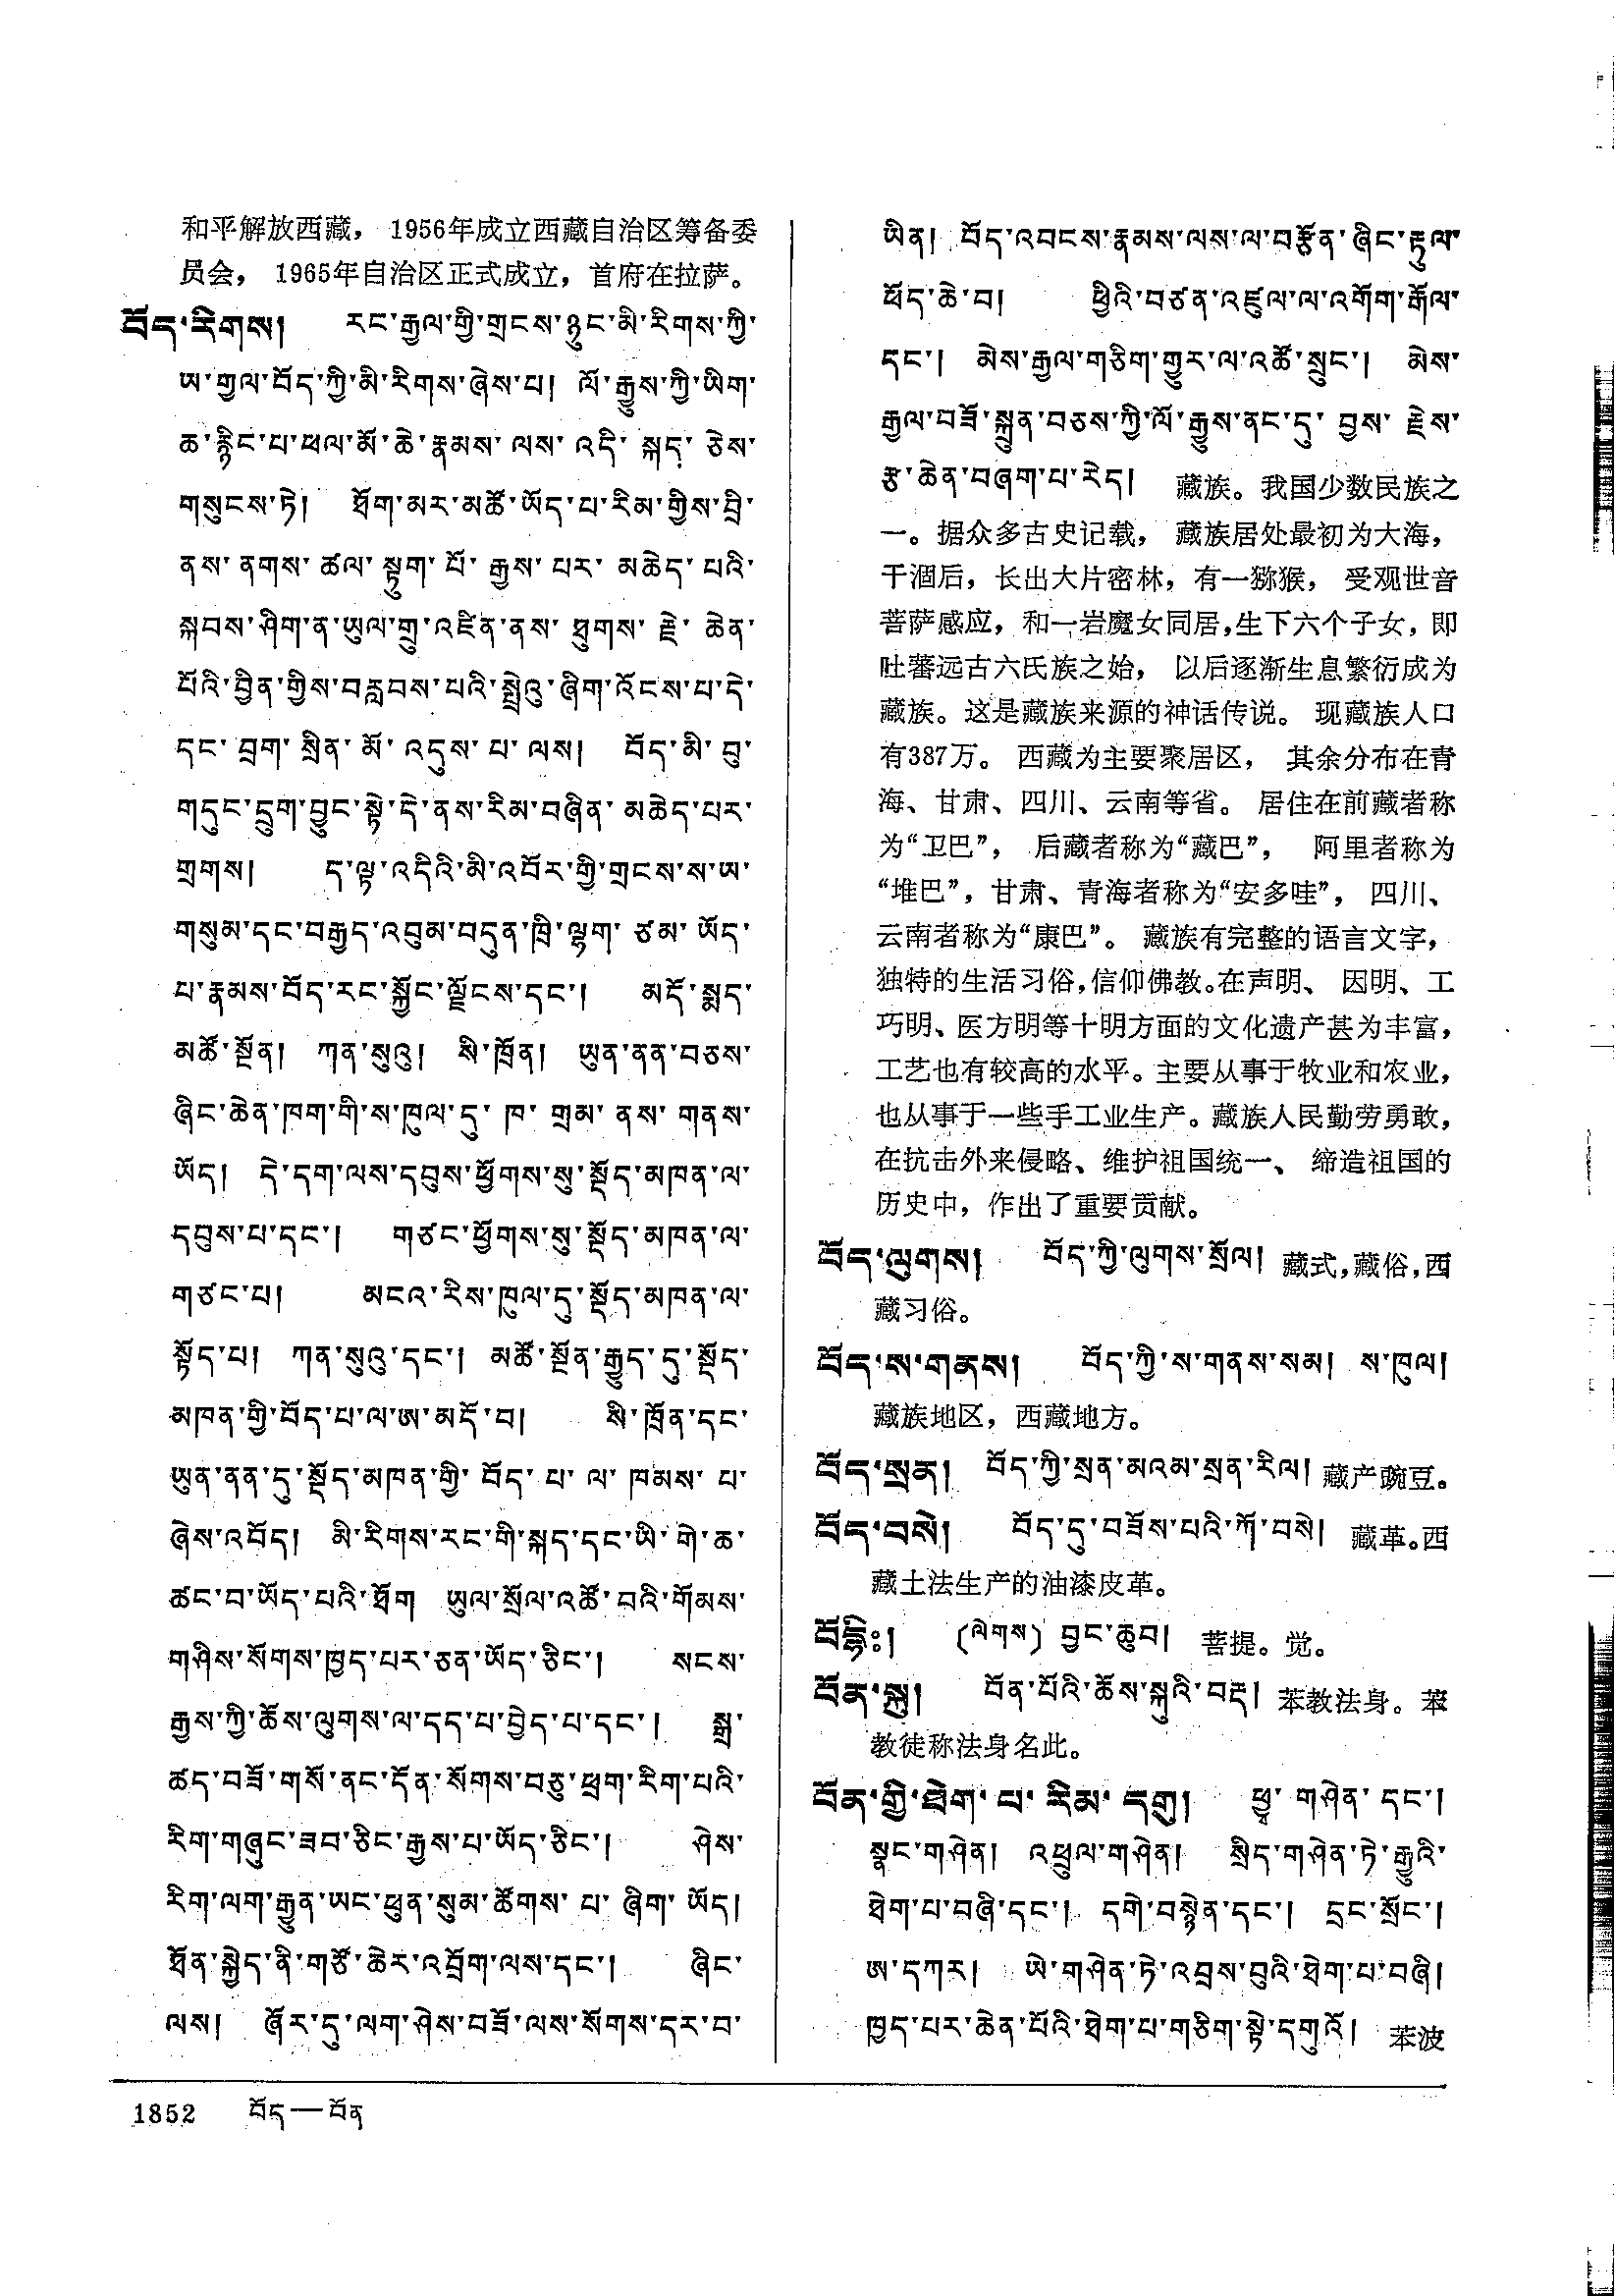 和平解放西藏， 1956年成立西藏自治区筹备委
员会， 1965年自治区正式成立，首府在拉萨。
བོད་རིགས། རང་རྒྱལ་གྱི་གྲངས་ཉུང་མི་རིགས་ཀྱི་
ཨ་གྱལ་བོད་ཀྱི་མི་རིགས་ཞེས་པ། ལོ་རྒྱུས་ཀྱི་ཡིག་
ཆ་རྙིང་པ་ཕལ་མོ་ཆེ་རྣམས་ལས་འདི་སྐད་ཅེས་
གསུངས་ཏེ། ཐོག་མར་མཚོ་ཡོད་པ་རིམ་གྱིས་བྲི་
ནས་ནགས་ཚལ་སྟུག་པོ་རྒྱས་པར་མཆེད་པའི་
སྐབས་ཤིག་ན་ཡུལ་གྲུ་འཛིན་ནས་ཐུགས་རྗེ་ཆེན་
པོའི་བྱིན་གྱིས་བརླབས་པའི་སྤྲེའུ་ཞིག་འོངས་པ་དེ་
དང་བྲག་སྲིན་མོ་འདུས་པ་ལས། བོད་མི་བུ་
གདུང་དྲུག་བྱུང་སྟེ་དེ་ནས་རིམ་བཞིན་མཆེད་པར་
གྲགས། ད་ལྟ་འདིའི་མི་འབོར་གྱི་གྲངས་ས་ཨ་
གསུམ་དང་བརྒྱད་འབུམ་བདུན་ཁྲི་ལྷག་ཙམ་ཡོད་
པ་རྣམས་བོད་རང་སྐྱོང་ལྗོངས་དང་། མདོ་སྨད་
མཚོ་སྔོན། ཀན་སུའུ། སི་ཁྲོན། ཡུན་ནན་བཅས་
ཞིང་ཆེན་ཁག་གི་ས་ཁུལ་དུ་ཁ་གྲམ་ནས་གནས་
ཡོད། དེ་དག་ལས་དབུས་ཕྱོགས་སུ་སྡོད་མཁན་ལ་
དབུས་པ་དང་། གཙང་ཕྱོགས་སུ་སྡོད་མཁན་ལ་
གཙང་པ། མངའ་རིས་ཁུལ་དུ་སྡོད་མཁན་ལ་
སྟོད་པ། ཀན་སུའུ་དང་། མཚོ་སྔོན་རྒྱུད་དུ་སྡོད་
མཁན་གྱི་བོད་པ་ལ་ཨ་མདོ་བ། སི་ཁྲོན་དང་
ཡུན་ནན་དུ་སྡོད་མཁན་གྱི་བོད་པ་ལ་ཁམས་པ་
ཞེས་འབོད། མི་རིགས་རང་གི་སྐད་དང་ཡི་གེ་ཆ་
ཚང་བ་ཡོད་པའི་ཐོག ཡུལ་སྲོལ་འཚོ་བའི་གོམས་
གཤིས་སོགས་ཁྱད་པར་ཅན་ཡོད་ཅིང་། སངས་
རྒྱས་ཀྱི་ཆོས་ལུགས་ལ་དད་པ་བྱེད་པ་དང་། སྒྲ་
ཚད་བཟོ་གསོ་ནང་དོན་སོགས་བཅུ་ཕྲག་རིག་པའི་
རིག་གཞུང་ཟབ་ཅིང་རྒྱས་པ་ཡོད་ཅིང་། ཤེས་
རིག་ལག་རྒྱུན་ཡང་ཕུན་སུམ་ཚོགས་པ་ཞིག་ཡོད།
ཐོན་སྐྱེད་ནི་གཙོ་ཆེར་འབྲོག་ལས་དང་། ཞིང་
ལས། ཞོར་དུ་ལག་ཤེས་བཟོ་ལས་སོགས་དར་བ་
ཡིན། བོད་འབངས་རྣམས་ལས་ལ་བརྩོན་ཞིང་རྟུལ་
ཕོད་ཆེ་བ། ཕྱིའི་བཙན་འཛུལ་ལ་འགོག་རྒོལ་
དང་། མེས་རྒྱལ་གཅིག་གྱུར་ལ་འཚོ་སྲུང་། མེས་
རྒྱལ་བཟོ་སྐྲུན་བཅས་ཀྱི་ལོ་རྒྱུས་ནང་དུ་བྱས་རྗེས་
རྩ་ཆེན་བཞག་པ་རེད། 藏族。我国少数民族之
一。据众多古史记载， 藏族居处最初为大海，
干涸后，长出大片密林，有一猕猴， 受观世音
菩萨感应，和一岩魔女同居，生下六个子女，即
吐蕃远古六氏族之始， 以后逐渐生息繁衍成为
藏族。这是藏族来源的神话传说。 现藏族人口
有387万。 西藏为主要聚居区， 其余分布在青
海、甘肃、四川、云南等省。 居住在前藏者称
为“卫巴”， 后藏者称为“藏巴”， 阿里者称为
“堆巴”，甘肃、青海者称为“安多哇”， 四川、
云南者称为“康巴”。 藏族有完整的语言文字，
独特的生活习俗，信仰佛教。在声明、 因明、工
巧明、医方明等十明方面的文化遗产甚为丰富，
工艺也有较高的水平。主要从事于牧业和农业，
也从事于一些手工业生产。藏族人民勤劳勇敢，
在抗击外来侵略、维护祖国统一、 缔造祖国的
历史中，作出了重要贡献。
བོད་ལུགས། བོད་ཀྱི་ལུགས་སྲོལ། 藏式，藏俗，西
藏习俗。
བོད་ས་གནས། བོད་ཀྱི་ས་གནས་སམ། ས་ཁུལ།
藏族地区，西藏地方。
བོད་སྲན། བོད་ཀྱི་སྲན་མའམ་སྲན་རིལ། 藏产豌豆。
བོད་བསེ། བོད་དུ་བཟོས་པའི་ཀོ་བསེ། 藏革。西
藏土法生产的油漆皮革。
བོདྷིཿ། (ལེགས) བྱང་ཆུབ། 菩提。觉。
བོན་སྐུ། བོན་པོའི་ཆོས་སྐུའི་བརྡ། 苯教法身。苯
教徒称法身名此。
བོན་གྱི་ཐེག་པ་རིམ་དགུ། ཕྱྭ་གཤེན་དང་།
སྣང་གཤེན། འཕྲུལ་གཤེན། སྲིད་གཤེན་ཏེ་རྒྱུའི་
ཐེག་པ་བཞི་དང་། དགེ་བསྙེན་དང་། དྲང་སྲོང་།
ཨ་དཀར། ཡེ་གཤེན་ཏེ་འབྲས་བུའི་ཐེག་པ་བཞི།
ཁྱད་པར་ཆེན་པོའི་ཐེག་པ་གཅིག་སྟེ་དགུའོ། 苯波
1852 བོད—བོན